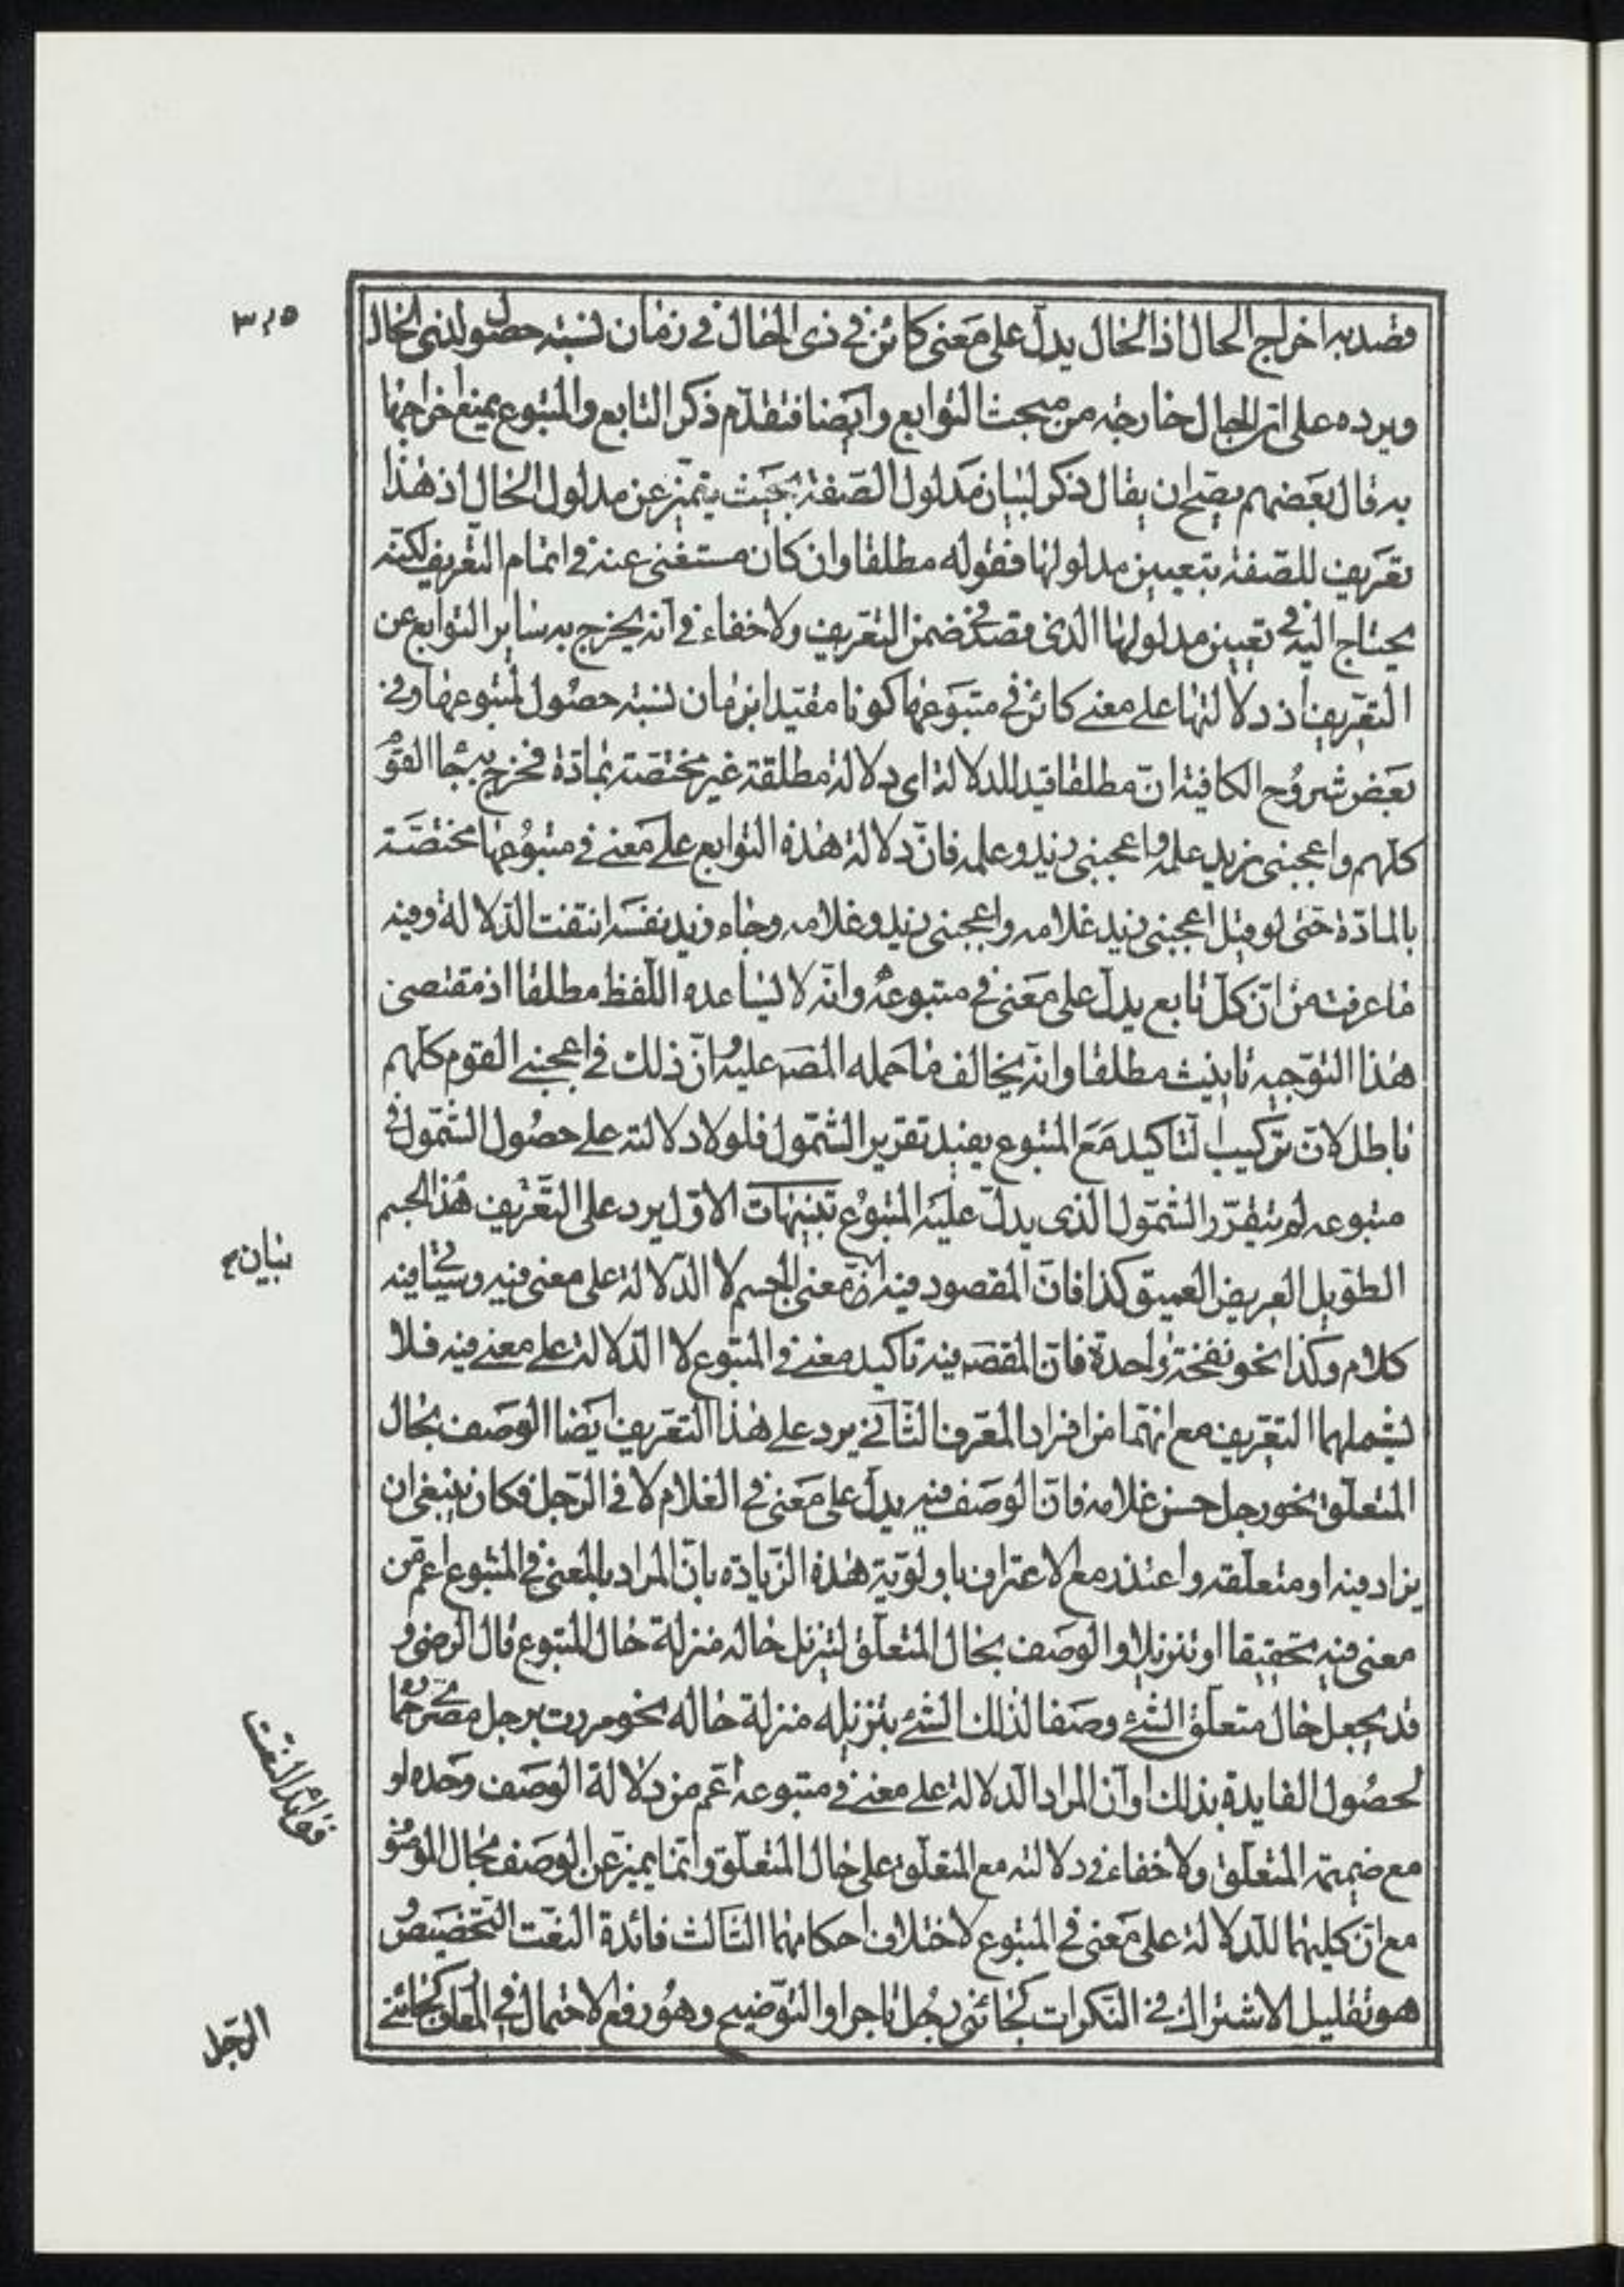 ٣١٥
قصد به اخراج الحال اذ الحال يدل على معنى كائن في ذى الحال في زمان نسبة حصول لذى الحال
ويرده على ان الحال خارجة من مبحث التوابع وايضا فتقدم ذكر التابع والمتبوع يمنع اخراجها
به قال بعضهم يصح ان يقال ذكر لبيان مدلول الصفة بحيث يتميز عن مدلول الحال اذ هذا
تعريف للصفة بتعيين مدلولها فقوله مطلقا وان كان مستغنى عنه في اتمام التعريف لكنه
يحتاج اليه في تعيين مدلولها الذى قصد في ضمن التعريف ولا خفاء في انه يخرج به ساير التوابع عن
التعريف اذ دلالتها على معنى كائن في متبوعها كونا مقيدا بزمان نسبة حصول لمتبوعها وفي
بعض شروح الكافية ان مطلقا قيد للدلالة اى دلالة مطلقة غير مختصة بمادة فخرج به جاء القوم
كلهم واعجبنى زيد علمه واعجبنى زيد وعلمه فان دلالة هذه التوابع على معنى في متبوعها مختصة
بالمادة حتى لو قيل اعجبنى زيد غلامه واعجبنى زيد وغلامه وجاء زيد نفسه انتفت الدلالة وفيه
ما عرفت من ان كل تابع يدل على معنى في متبوعه وانه لا يساعده اللفظ مطلقا اذ مقتضى
هذا التوجيه تانيث مطلقا وانه يخالف ما حمله المصه عليه وان ذلك في اعجبنى القوم كلهم
باطل لان تركيب التاكيد مع المتبوع يفيد تقرير الشمول فلولا دلالته على حصول الشمول في
متبوعه لم يتقرر الشمول الذى يدل عليه المتبوع تنبيهات الاول يرد على التعريف هذا الجسم
الطويل العريض العميق كذا فان المقصود فيه بيان معنى الجسم لا الدلالة على معنى فيه وسيأتى فيه
كلام وكذا نحو نفخة واحدة فان المقصه فيه تاكيد معنى في المتبوع لا الدلالة على معنى فيه فلا
يشملهما التعريف مع انهما من افراد المعرف الثانى يرد على هذا التعريف ايضا الوصف بحال
المتعلق نحو رجل حسن غلامه فان الوصف فيه يدل على معنى في الغلام لا في الرجل فكان ينبغى ان
يزاد فيه او متعلقه واعتذر مع الاعتراف باولوية هذه الزيادة بان المراد بالمعنى في المتبوع اعم من
معنى فيه تحقيقا او تنزيلا والوصف بحال المتعلق لتنزيل حاله منزلة حال المتبوع قال الرضى و
قد يجعل حال متعلق الشئ وصفا لذلك الشئ بتنزيله منزلة حاله نحو مررت برجل مصرى حماره
لحصول الفايدة بذلك او ان المراد الدلالة على معنى في متبوعه اعم من دلالة الوصف وحده او
مع ضميمة المتعلق ولا خفاء في دلالته مع المتعلق على حال المتعلق وانما يميز عن الوصف بحال الموصوف
مع ان كليهما للدلالة على معنى في المتبوع لاختلاف احكامهما الثالث فائدة النعت التخصيص و
هو تقليل الاشتراك في النكرات كجائنى رجل تاجر او التوضيح وهو رفع الاحتمال في المعارف كجائنى
بيان
فوائد النعت
الرجل